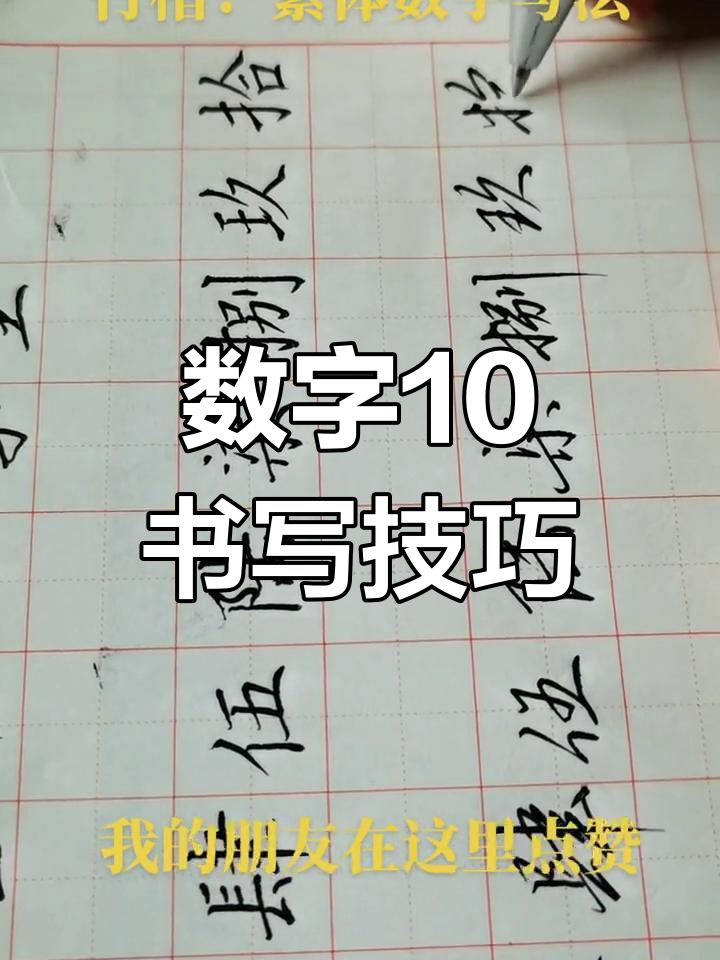 行楷：繁体数字写法
数字10
书写技巧
我的朋友在这里点赞
肆伍陸柒捌玖拾
肆伍
捌玖